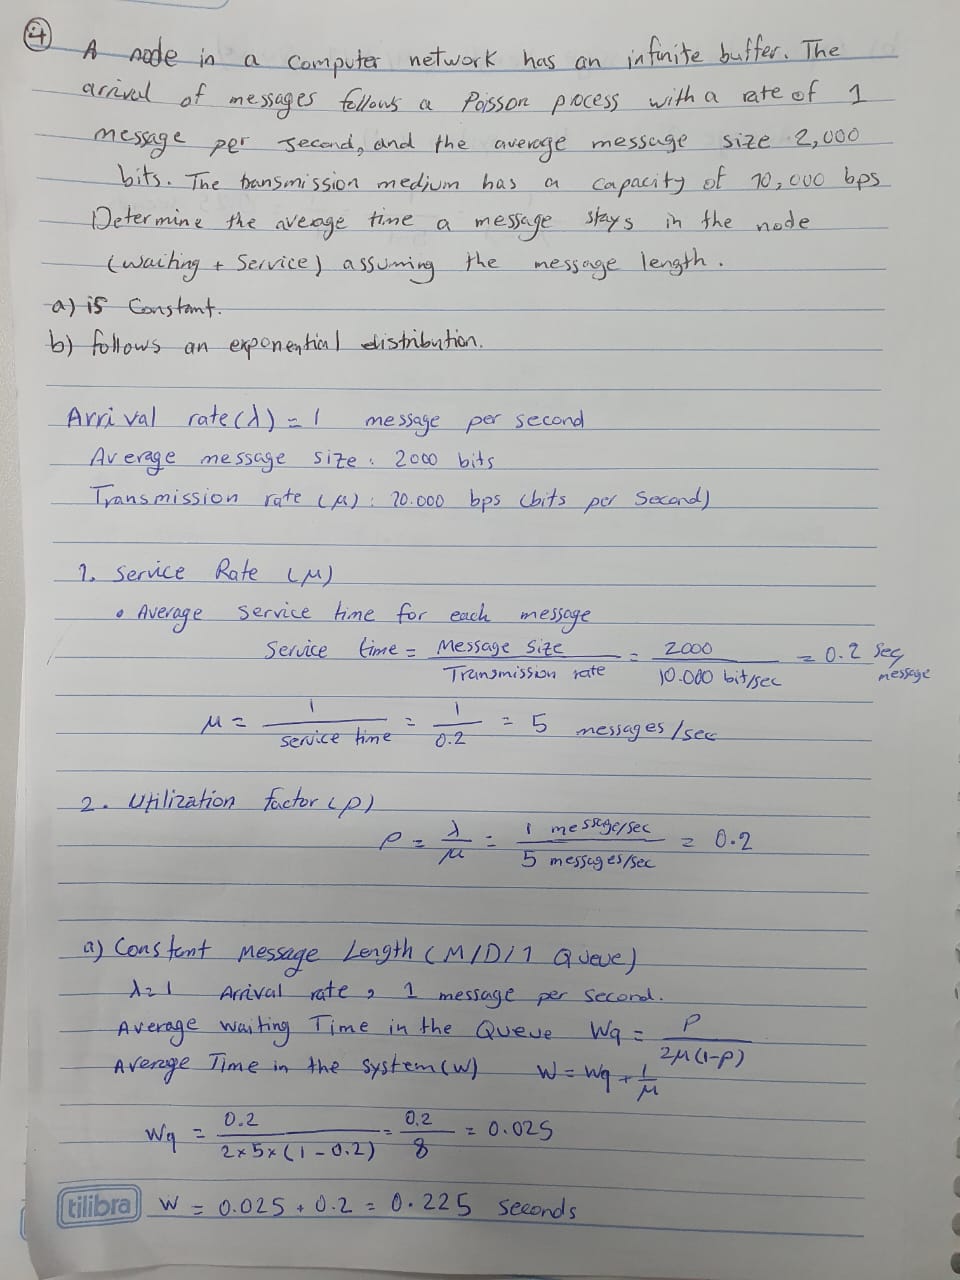 4
A node in a computer network has an infinite buffer. The
arrival of messages follows a Poisson process with a rate of 1
message per second, and the average message size 2,000
bits. The transmission medium has a capacity of 10,000 bps
Determine the average time a message stays in the node
(waiting + Service) assuming the message length.
a) is Constant.
b) follows an exponential distribution.
Arrival rate (λ) = 1 message per second
Average message size: 2000 bits
Transmission rate (μ): 10.000 bps (bits per Second)
1. Service Rate (μ)
• Average service time for each message
Service time = Message Size / Transmission rate = 2000 / 10.000 bit/sec = 0.2 sec/message
μ = 1 / service time = 1 / 0.2 = 5 messages/sec
2. Utilization factor (ρ)
ρ = λ / μ = 1 message/sec / 5 messages/sec = 0.2
a) Constant Message Length (M/D/1 Queue)
λ=1 Arrival rate, 1 message per second.
Average waiting Time in the Queue Wq = ρ / 2μ(1-ρ)
Average Time in the system (W) W = Wq + 1/μ
Wq = 0.2 / 2×5×(1-0.2) = 0.2 / 8 = 0.025
tilibra W = 0.025 + 0.2 = 0.225 seconds